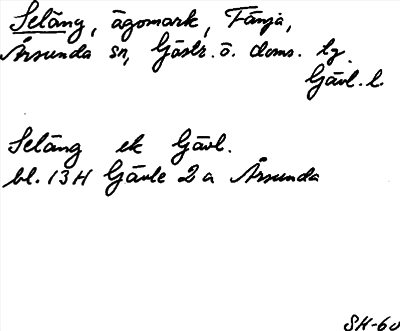 Seläng, ägomark, Fänja,
Årsunda sn, Gästr. ö. doms. tg
Gävl. l.
Seläng ek Gävl.
bl. 13H Gävle 2a Årsunda
SH-60